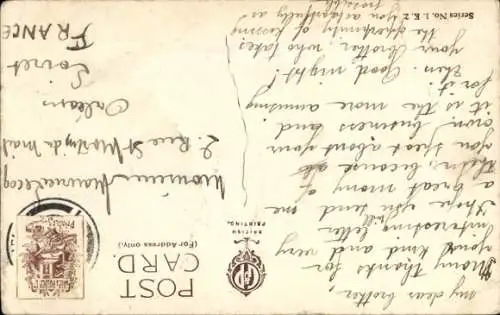 POST CARD.
(For Address only.)
BRITISH PRINTING.
Series No. 1. E. 2.
my dear brother
Many thanks for
your kind and very
interesting letter
I hope you will send me
a great many of
them, because all
you speak about your
own business and
it is the more amusing
for it!
then. Good night!
your brother, who takes
the opportunity of kissing
you as
possible
Monsieur Maurice
2. Rue St Martin du Mail
Orléans
Loiret
FRANCE